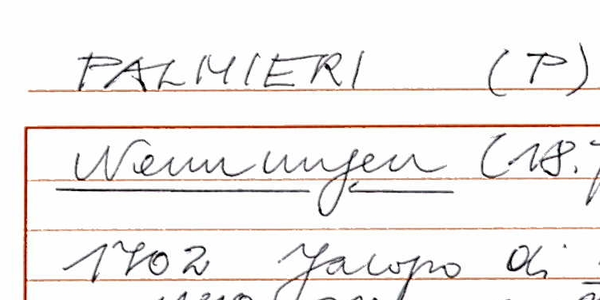 PALMIERI (P)
Nennungen (18.
1702 Jacopo di